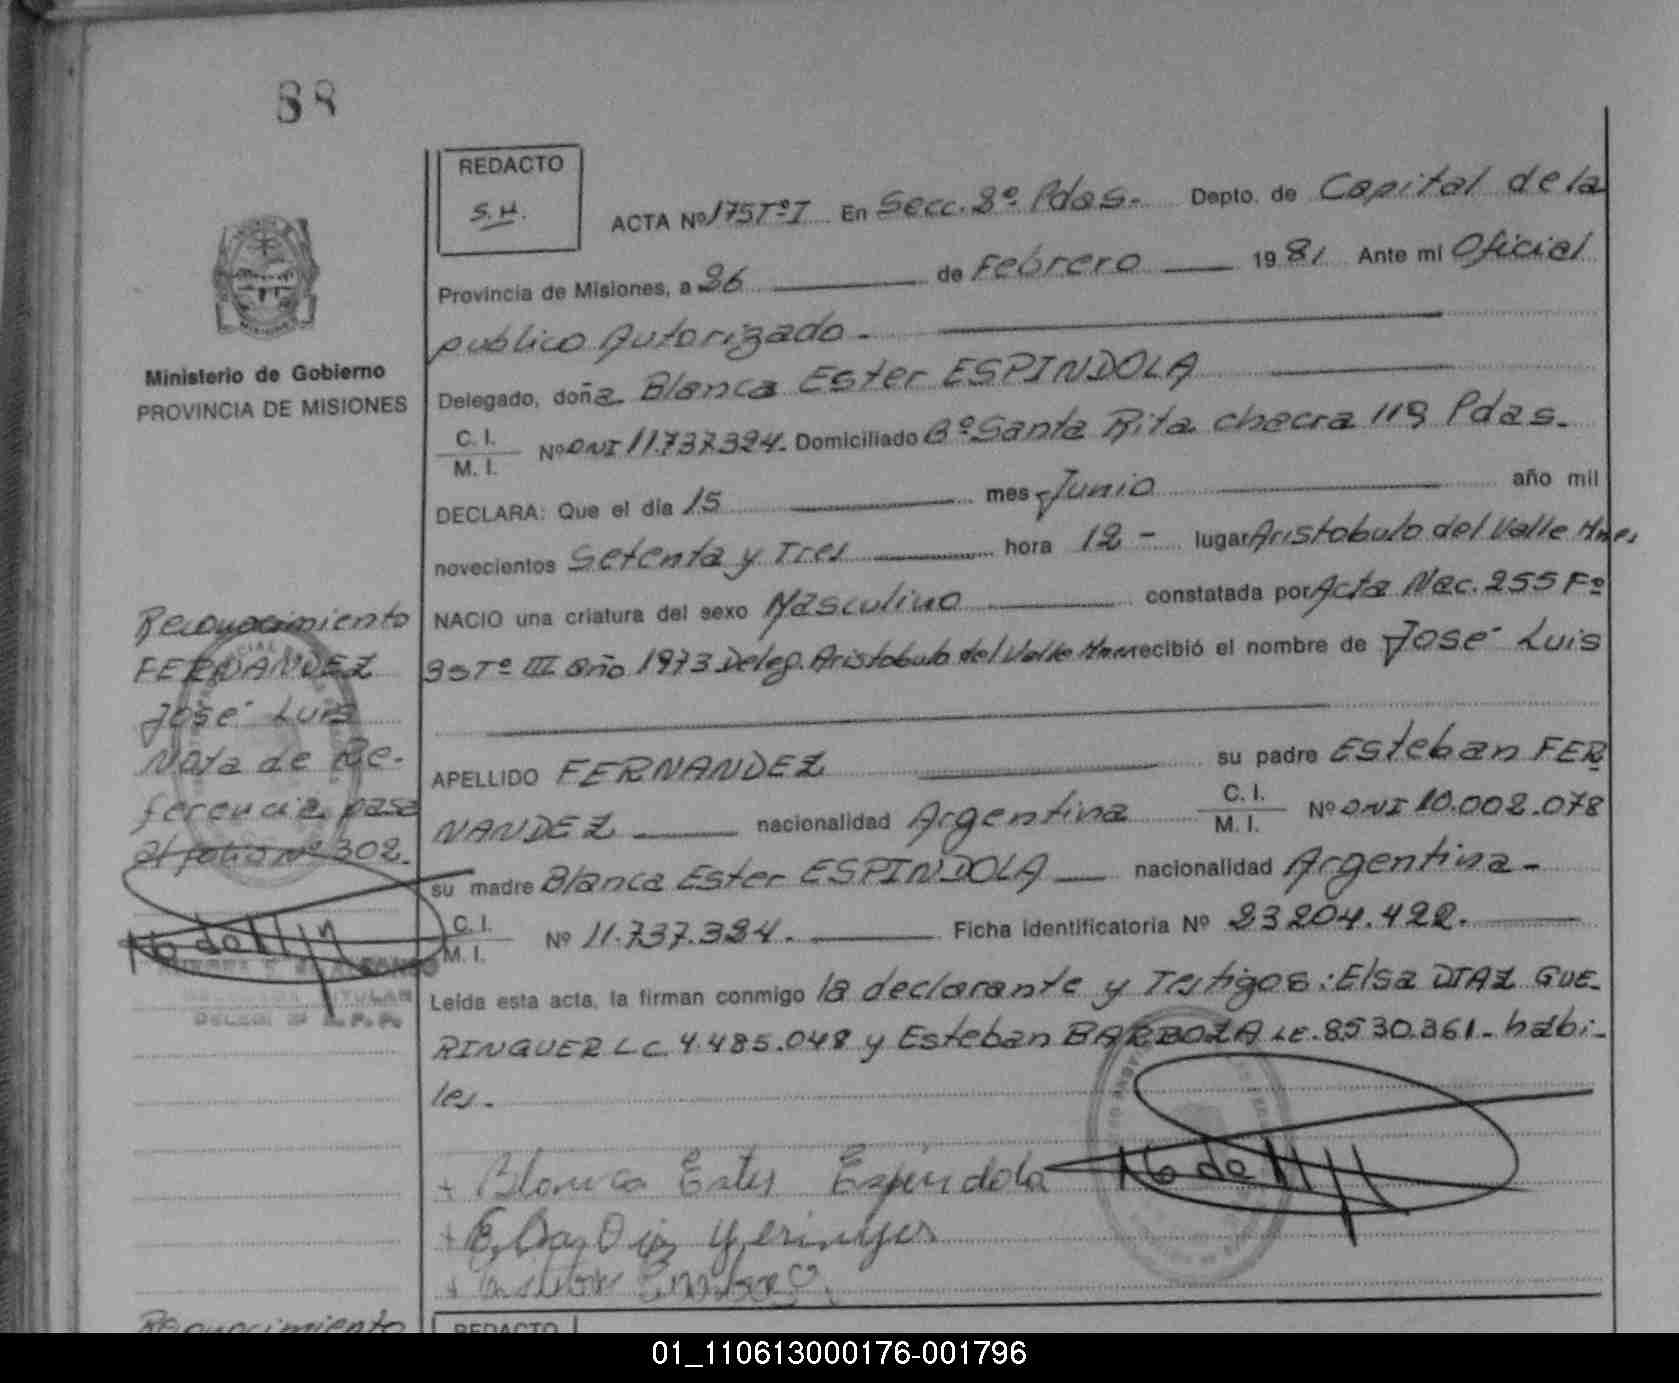 88
REDACTO
S.H.
ACTA Nº 175 Tº I En Secc. 8º Pdas. Depto. de Capital de la
Provincia de Misiones, a 26 de Febrero 1981 Ante mi Oficial
publico Autorizado.-
Ministerio de Gobierno
PROVINCIA DE MISIONES
Delegado, doña Blanca Ester ESPINDOLA
C. I.
M. I.
Nº DNI 11.737.324. Domiciliado Bº Santa Rita chacra 119 Pdas.
DECLARA: Que el día 15 mes Junio año mil
novecientos Setenta y Tres hora 12 - lugar Aristobulo del Valle Mnes
NACIO una criatura del sexo Masculino constatada por Acta Nac. 255 Fº
Tº III año 1973 Deleg. Aristobulo del Valle recibió el nombre de José Luis
APELLIDO FERNANDEZ su padre Esteban FER
NANDEZ nacionalidad Argentina C. I.
M. I. Nº DNI 10.002.078
su madre Blanca Ester ESPINDOLA nacionalidad Argentina -
C. I.
M. I.
Nº 11.737.324. Ficha identificatoria Nº 23204.422.
Leída esta acta, la firman conmigo la declarante y Testigos: Elsa DIAZ GUE-
RINGUER L C. 4.485.048 y Esteban BARBOZA LE. 8530.361- habi-
les.
Reconocimiento
FERNANDEZ
José Luis
Nota de Re-
ferencia pasa
al folio Nº 302.
TITULAR
Blanca Ester Espindola
Reconocimiento
REDACTO
01_110613000176-001796